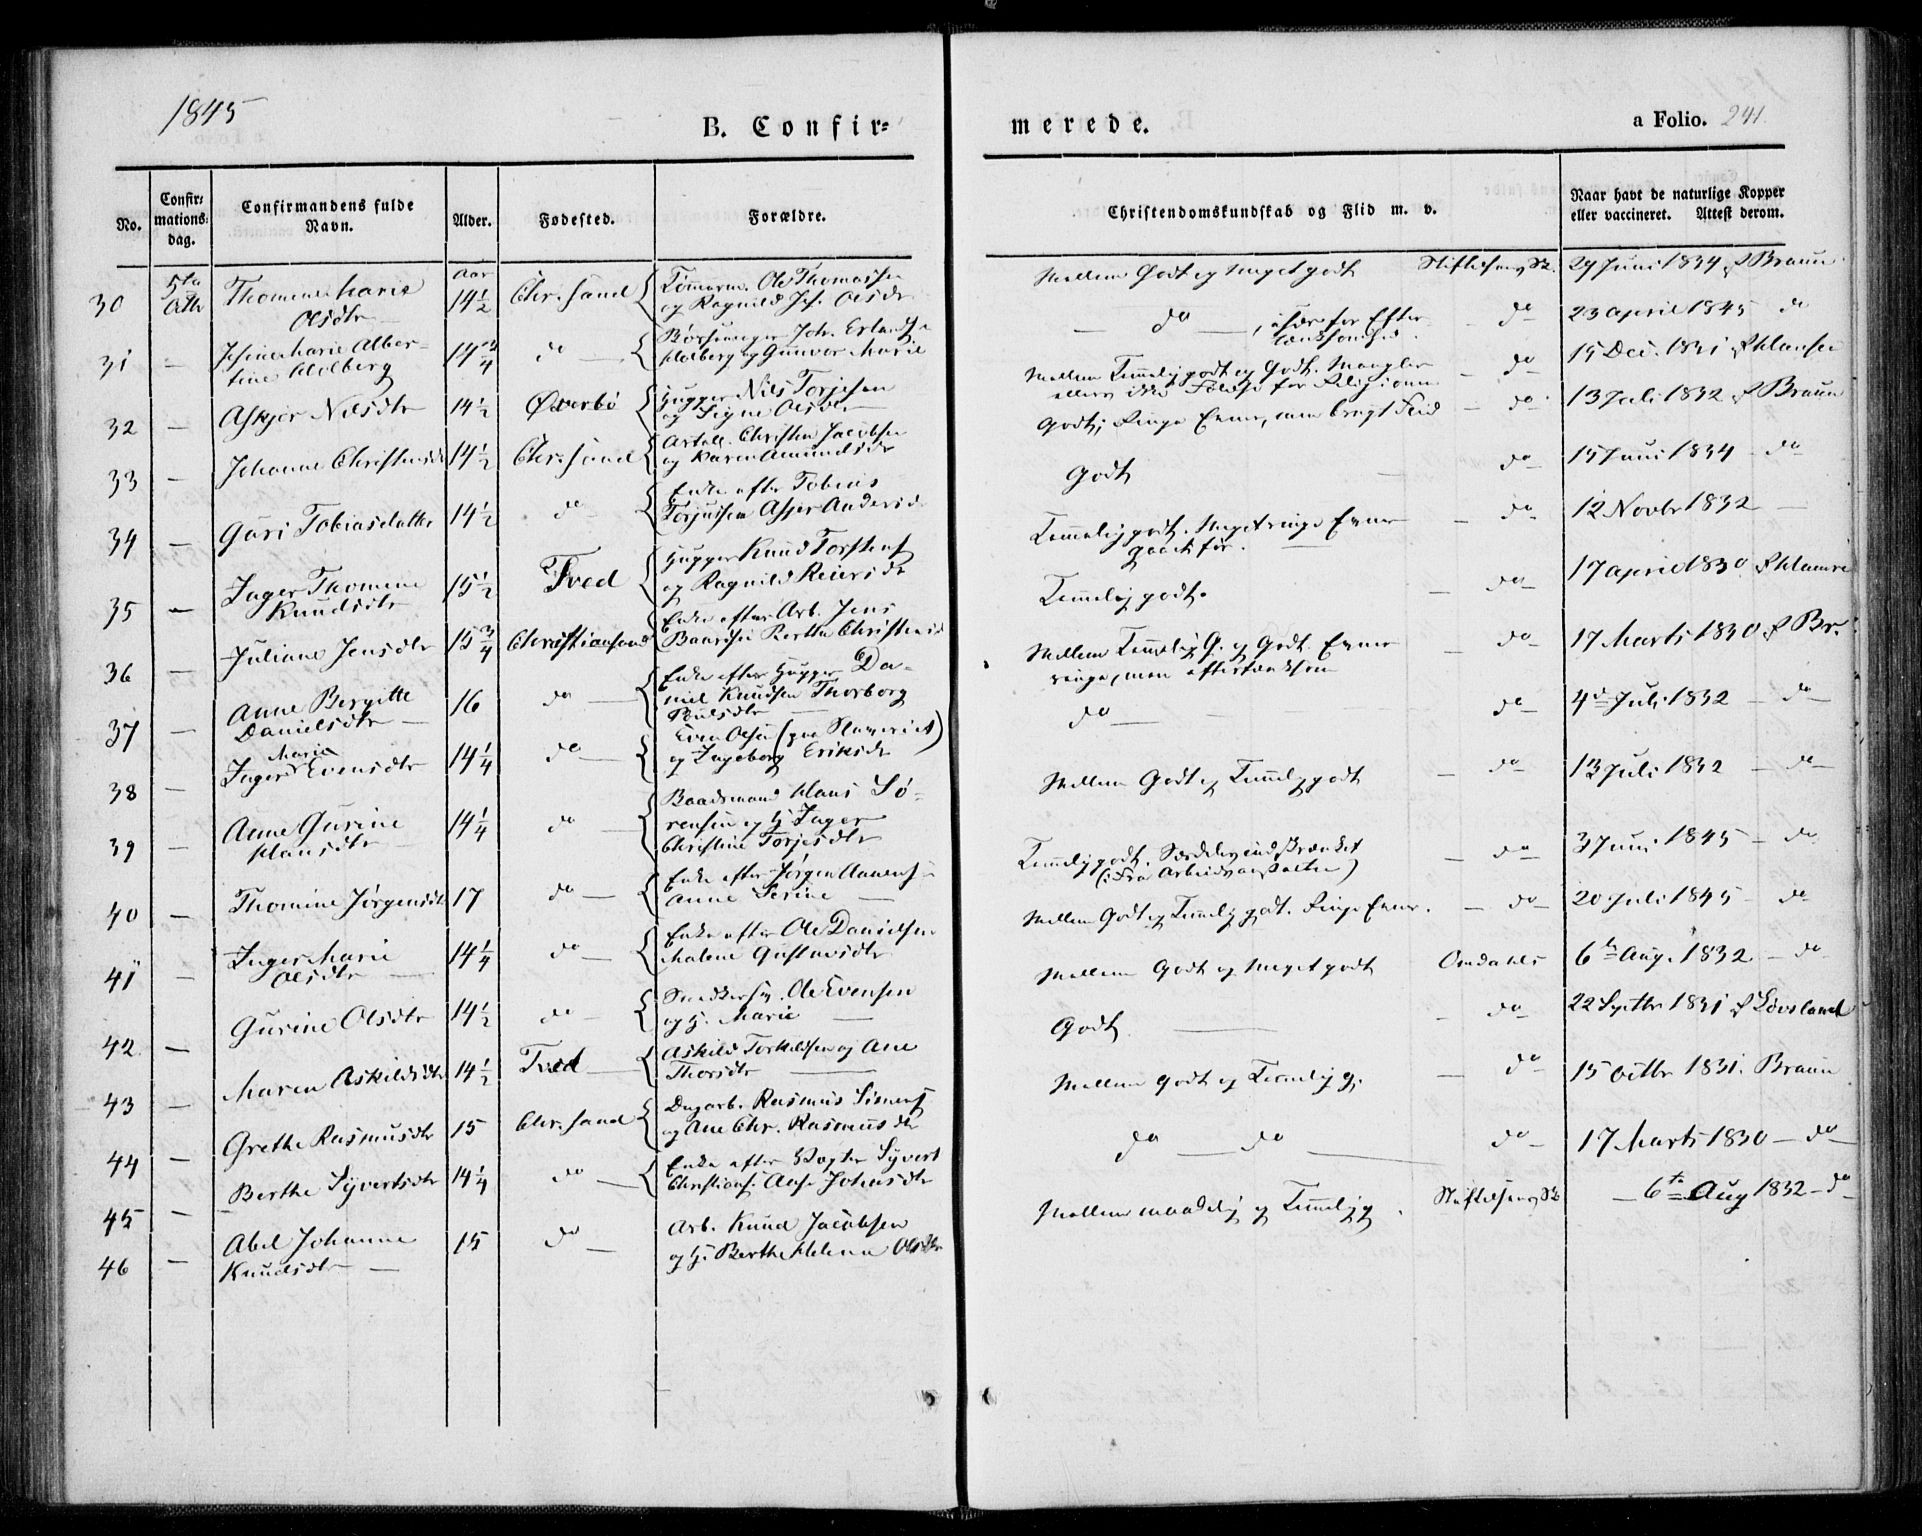 1845
B. Confir=
merede.
a Folio. 241.
No.
Confir=
mations=
dag.
Confirmandens fulde
Navn.
Alder.
Fødested.
Forældre.
Christendomskundskab og Flid m. v.
Naar havt de naturlige Kopper
eller vaccineret. Attest derom.
30 5te Octbr Thomine Marie Olsdtr Aar 14 1/2 Chr.sand
Tømmerm. Ole Thomassen
og Ragnild Olsdtr
Mellem Godt og Meget godt 29 Juni 1834 Braun
31 - Marie Alber-
tine Holberg 14 3/4 do
Holberg og Gunvor Marie
do do 23 April 1845 do
32 - Askjer Nilsdtr 14 1/2 Øverbø
Nils Torjesen
og Signe Olsdtr
Mellem Temmelig godt og Godt. do 15 Dec. 1831 Hansen
33 - Johanne Christensdtr 14 1/2 Chr.sand
Christen Jacobsen
og Karen Amundsdtr
Godt; Ringe Evner, men brugt Flid do 13 Juli 1832 Braun
34 - Guri Tobiasdatter 14 1/2 do
Enke efter Tobias
Godt do 15 Juni 1834 do
35 - Inger Thomine
Knudsdtr 15 1/2 Tved
Knud Torstens
og Ragnild Reiersdtr
Temmelig godt. Meget ringe Evner do 12 Novbr 1832 -
36 - Juliane Jensdtr 15 3/4 Christiansand
Enke efter Arb. Jens
Berthe Christensd
Temmelig godt. do 17 April 1830
37 - Anne Bergitte
Danielsdtr 16 do
Enke efter Da-
niel Knudsen Thorborg
Mellem Temmelig G. og Godt. Evner
ringe, men eftertænksom do 17 Marts 1830 Br.
38 - Inger Marie Evensdtr 14 1/4 do
Even Olsen (paa Slaveriet)
og Ingeborg Eriksdtr
do do 4de Juli 1832 do
39 - Anne Gurine
Hansdtr 14 1/4 do
Baadsmand Hans Sø-
rensen og H. Inger
Christine Torjesdtr
Mellem Godt og Temmelig godt do 13 Juli 1832 do
40 - Thomine Jørgensdtr 17 do
Enke efter Jørgen
Anne Serine
Temmelig godt. Særdeles indskrænket
(Fra Arbeidsanstalten) do 3 Juni 1845 do
41 - Inger Marie
Olsdtr 14 1/4 do
Enke efter Ole Danielsen
Malene Gustavsdtr
Mellem Godt og Temmelig godt. Ringe Evner. do 20 Juli 1845 do
42. - Gurine Olsdtr 14 1/2 do
Ole Evensen
og H. Marie
Mellem Godt og Meget godt Omdahls 6te Aug. 1832 do
43 - Maren Askildsdtr 14 1/2 Tved
Askild Torkildsen og Ane
Thorsdtr
Godt do 22 Septbr 1831 Løvsland
44 - Grethe Rasmusdtr 15 Chr.sand
Dagarb. Rasmus
og Ane Chr. Rasmusdtr
Mellem Godt og Temmelig g. do 15 Octbr 1831. Braun
45 - Berthe Syvertsdtr 14 1/4 do
Enke efter Vægter Syvert
do do do 17 Marts 1830 do
46 - Abel Johanne
Knudsdtr 15 do
Arb. Knud Jacobsen
og H. Berthe Helena Olsdtr
Mellem maadelig og Temmelig g. 6te Aug 1832 do